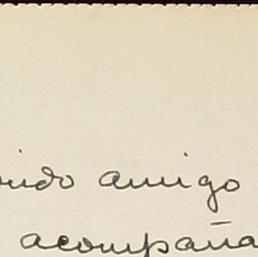 rido amigo
acompaña